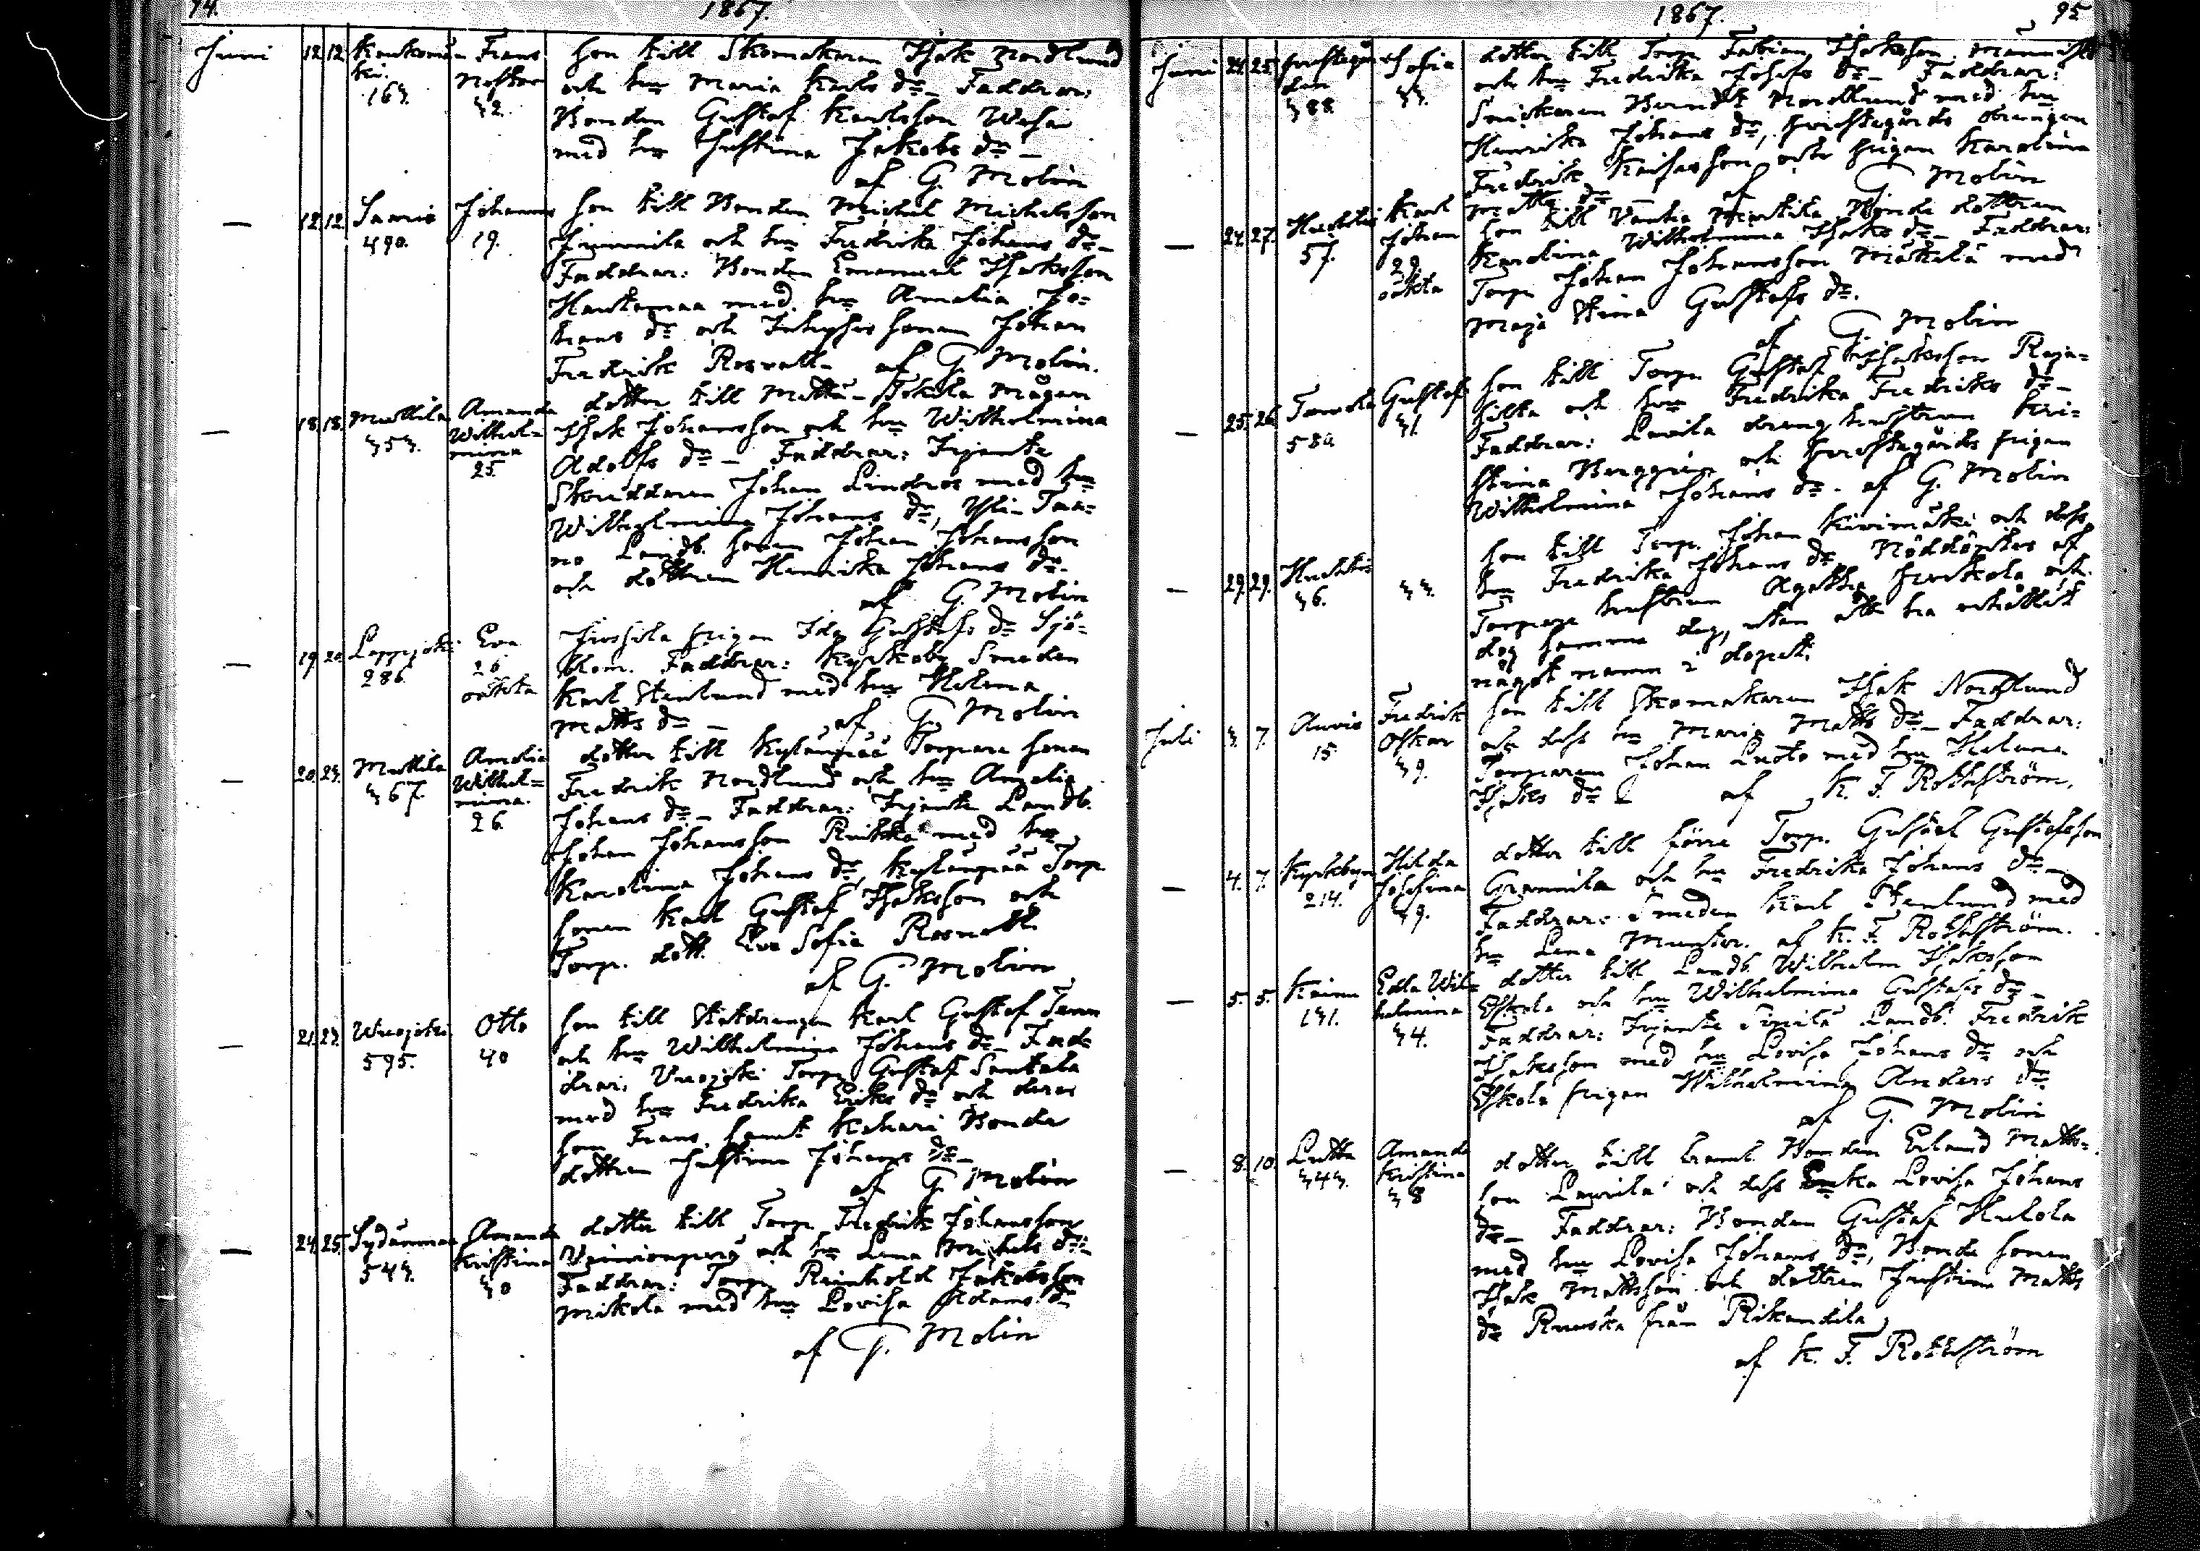 94.
1867.
Juni 12. 12. Frans
163. 32.
son till Skomakaren Isak Nordlund
och hu Maria Karls dr Faddrar:
Bonden Gustaf Karlsson Wesa
med hu Justina Jakobs dr
af G. Molin
— 12. 12. Saaris Johannes
490. 19.
son till Bonden Michel Michelsson
och hu Fredrika Johans dr
Faddrar: Bonden Emanuel Isaksson
Hautamaa med hu Amalia Jo=
hans dr och Inhyses sonen Johan
Fredrik Rosvall. af G. Molin.
— 18. 18. Mattila Amanda
353. Wilhel=
mina
25.
dotter till Mattu-Eskola mågen
Isak Johansson och hu Wilhelmina
Adolfs dr Faddrar:
Skräddaren Johan Lindros med hu
Wilhelmina Johans dr, Yli-Taa=
no Landb. sonen Johan Johansson
och dottren Henrika Johans dr.
af G. Molin
— 19. 20. Eva
286. 26
oäkta
pigan Ida Gustafs dr Sjö=
blom. Faddrar: Kyrkoby Smeden
Karl Stenlund med hu Helena
Matts dr
af G. Molin
— 20. 23. Mattila Amalia
367. Wilhel=
mina.
26.
dotter till Kylänpää Torpare sonen
Fredrik Nordlund och hu Amalia
Johans dr Faddrar: Landb.
Johan Johansson med hu
Karolina Johans dr, Kylänpää Torp
sonen Karl Gustaf Isaksson och
Torp. dott. Eva Sofia Rosvall
af G. Molin
— 21. 23. Otto
595. 40
son till Statdrängen Karl Gustaf
och hu Wilhelmina Johans dr Fad=
drar: Torp. Gustaf Santala
med hu Fredrika Eriks dr och deras
son Frans, samt Kohari Bonde
dottren Justina Johans dr
af G. Molin
— 24. 25. Sydänmaa Amanda
543. Kristina
30
dotter till Torp. Fredrik Johansson
och hu Lena Michels dr
Faddrar: Torp. Reinhold Jakobsson
Mikola med hu Lovisa Adams dr
af G. Molin
1867.
95
Juni 24. 25. Sofia
388. 33.
dotter till Torp. Fabian Isaksson
och hu Fredrika Josefs dr Faddrar:
Snickaren Berndt Nordlund med hu
Henrika Johans dr, Prestegårds drängen
Fredrik och pigan Karolina
Matts dr
af G. Molin
— 24. 27. Karl
57. Johan
29
oäkta
son till Bonde dottren
Karolina Wilhelmina Isaks dr Faddrar:
Torp. Johan Johansson Mäkelä med
Maja Stina Gustafs dr.
af G. Molin
— 25. 26. Gustaf
580 31.
son till Torp. Gustaf Isaksson Raja=
silta och hu Fredrika Fredriks dr
Faddrar: Lavila dräng hustrun Kri=
stina Berggren och Prestegårds pigan
Wilhelmina Johans dr. af G. Molin
— 29. 29. Huhtis
36. 33.
son till Torp. Johan Kivimäki och dess
hu Fredrika Johans dr Nöddöptes af
Torpare hustrun Agatha och
dog samma dag, utan att ha erhållit
något namn i dopet.
Juli 3. 7. Auvis Fredrik
15 Oskar
39.
son till Skomakaren Isak Nordlund
och dess hu Maria Matts dr Faddrar:
Torparen Johan Luoto med hu Helena
Isaks dr
af K. F. Rothström.
— 4. 7. Kyrkbyn Hilda
214. Josefina
39.
dotter till förra Torp. Gustaf Gustafsson
och hu Fredrika Johans dr
Faddrar: Smeden Karl Stenlund med
hu Lena Munter. af K. F. Rothström.
— 5. 5. Edla Wil=
131. helmina
34.
dotter till Landb. Wilhelm Isaksson
Eskola och hu Wilhelmina Gustafs dr
Faddrar: Landb. Fredrik
Isaksson med hu Lovisa Johans dr och
Eskola pigan Wilhelmina Anders dr
af G. Molin
— 8. 10. Amanda
343. Kristina
38
dotter till framl. Bonden Erland Matts=
son Laurila och dess Enka Lovisa Johans
dr Faddrar: Bonden Gustaf Hukola
med hu Lovisa Johans dr, Bonde sonen
Isak Mattsson och dottren Justina Matts
dr Ruuska från Rikandila
af K. F. Rothström